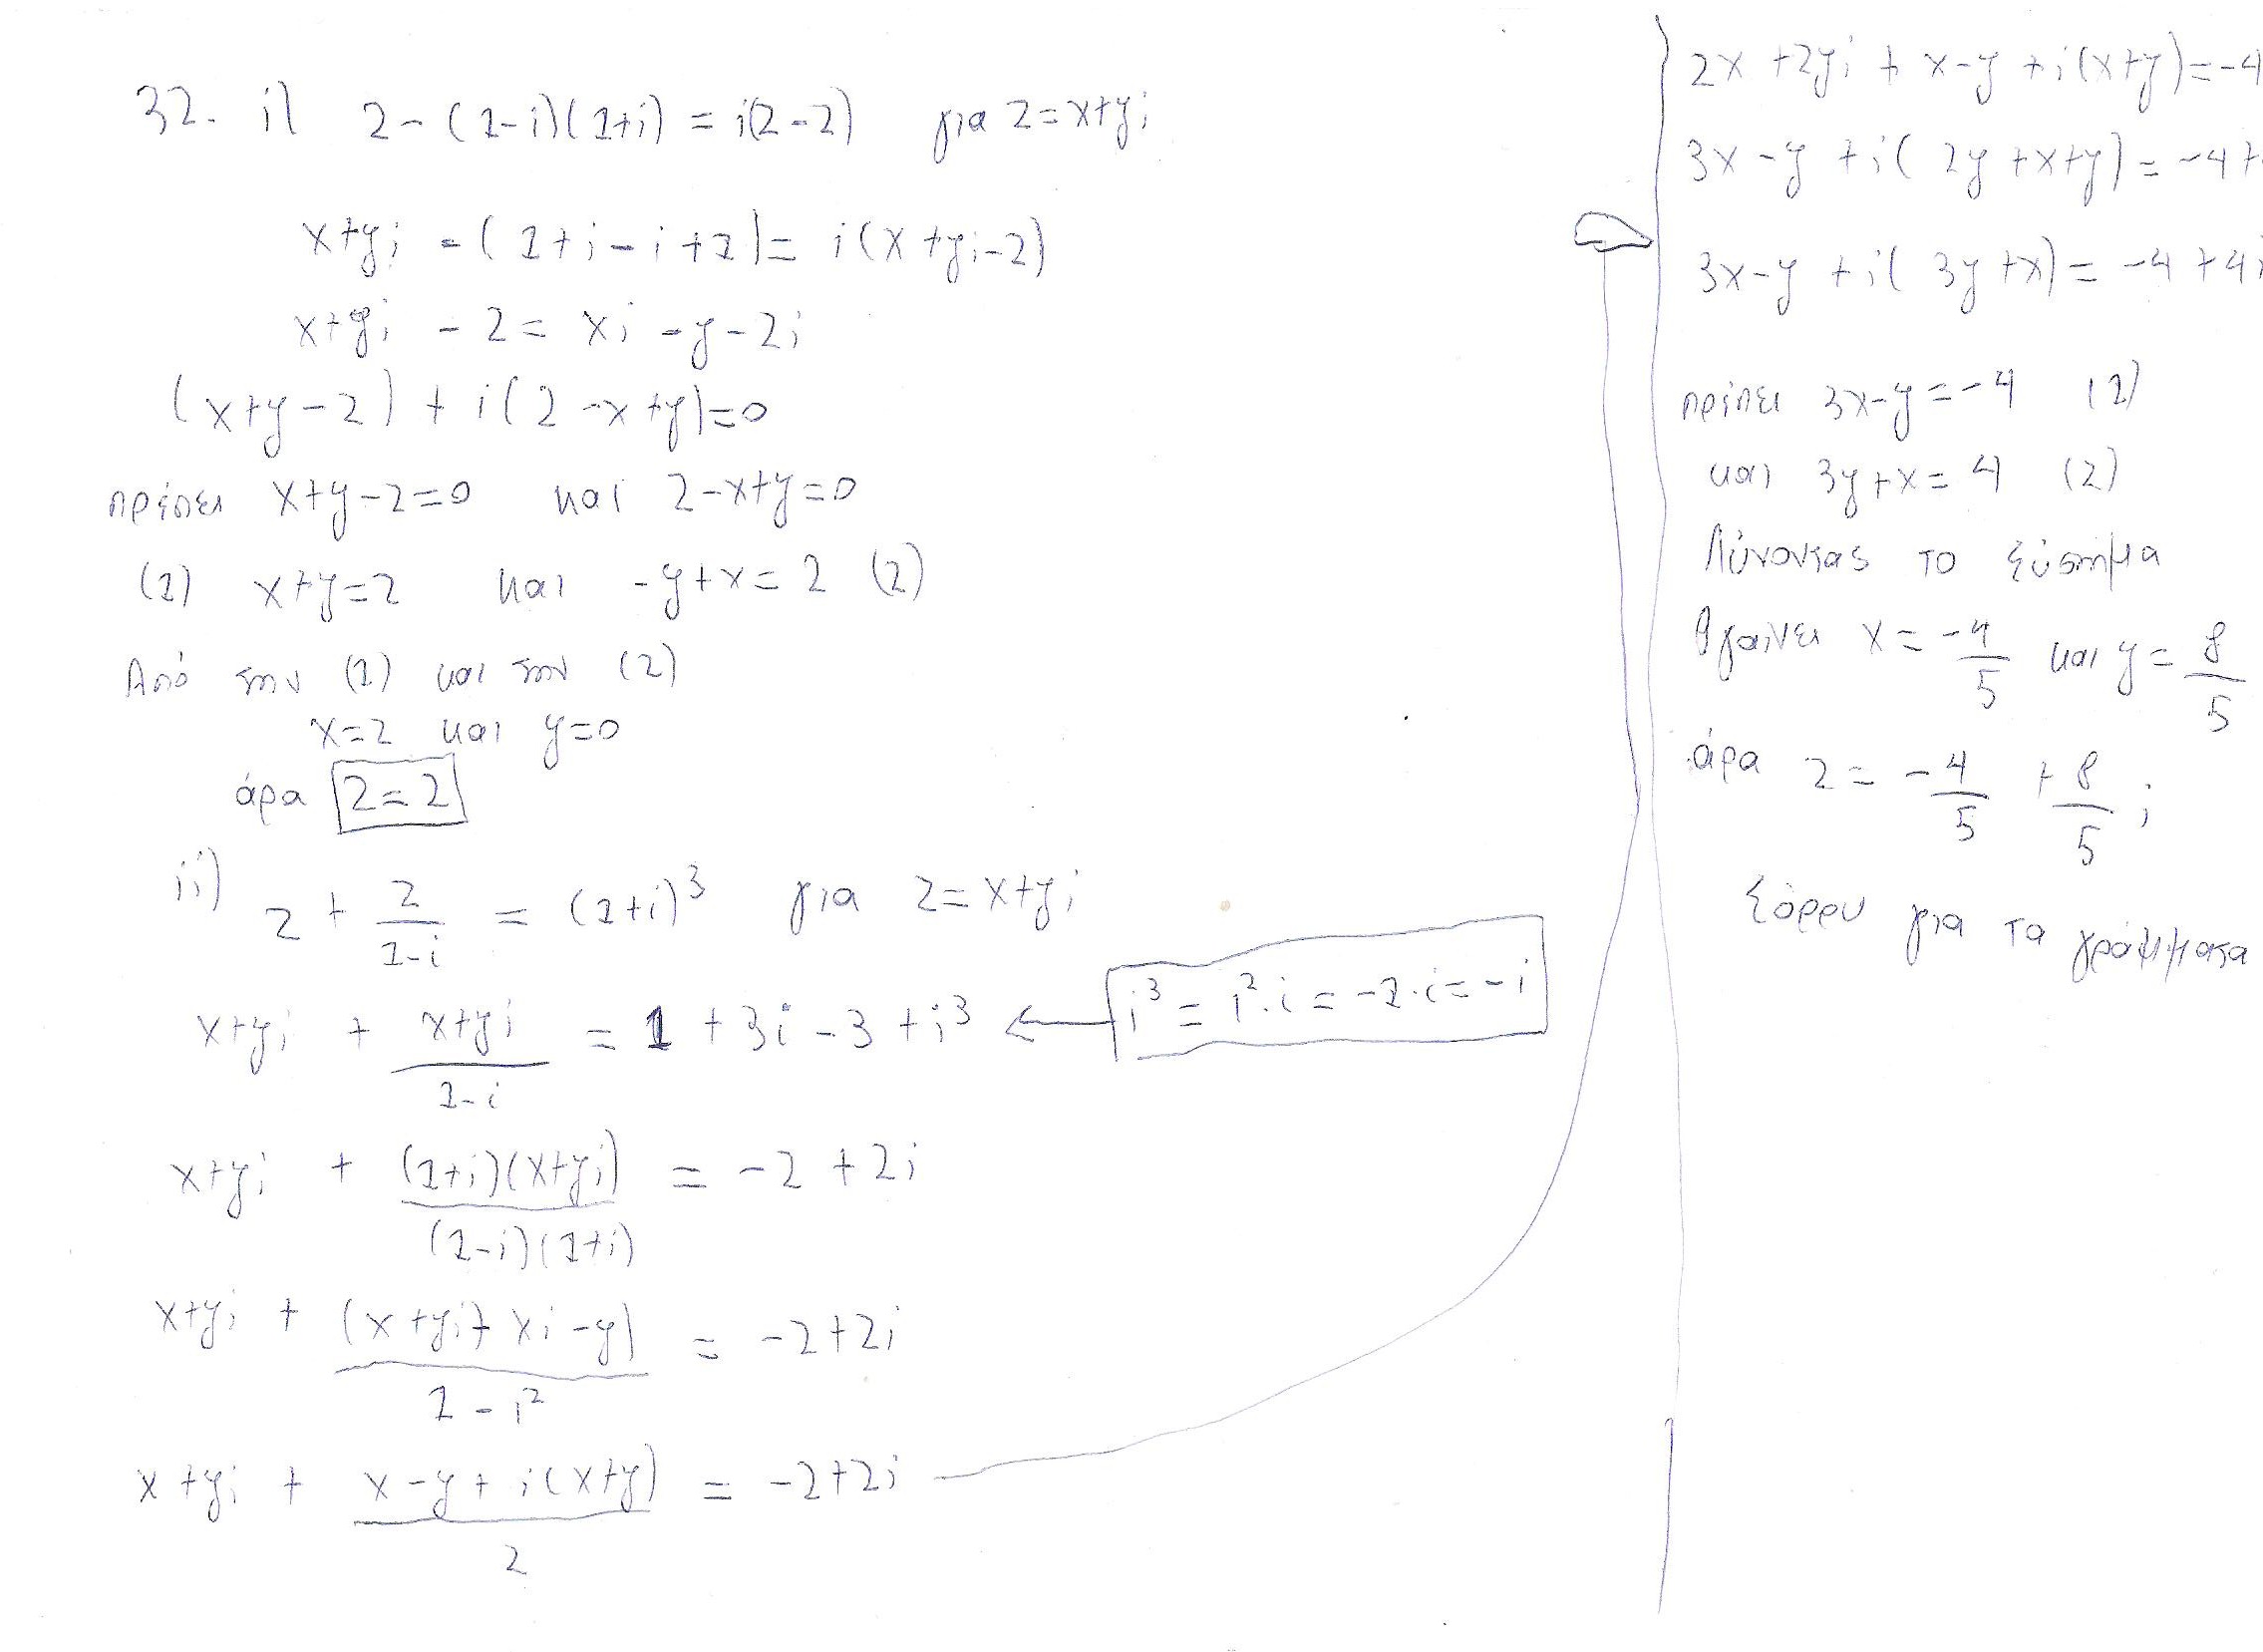 32. i) z - (1-i)(1+i) = i(z-2) για z=x+yi
x+yi - (1+i-i+1) = i(x+yi-2)
x+yi - 2 = xi - y - 2i
(x+y-2) + i(2-x+y)=0
πρέπει x+y-2=0 και 2-x+y=0
(1) x+y=2 και -y+x=2 (2)
Από την (1) και την (2)
x=2 και y=0
άρα z=2
ii) z + z/(1-i) = (1+i)³ για z=x+yi
x+yi + (x+yi)/(1-i) = 1+3i-3+i³ ← i³ = i²·i = -1·i = -i
x+yi + (1+i)(x+yi)/(1-i)(1+i) = -2+2i
x+yi + (x+yi+xi-y)/(1-i²) = -2+2i
x+yi + (x-y+i(x+y))/2 = -2+2i
2x+2yi + x-y + i(x+y)=-4
3x-y + i(2y+x+y) = -4+
3x-y + i(3y+x) = -4+4i
πρέπει 3x-y=-4 (1)
και 3y+x=4 (2)
Λύνοντας το σύστημα
βγαίνει x=-4/5 και y=8/5
άρα z = -4/5 + 8/5 i
Σόρρυ για τα γράμματα